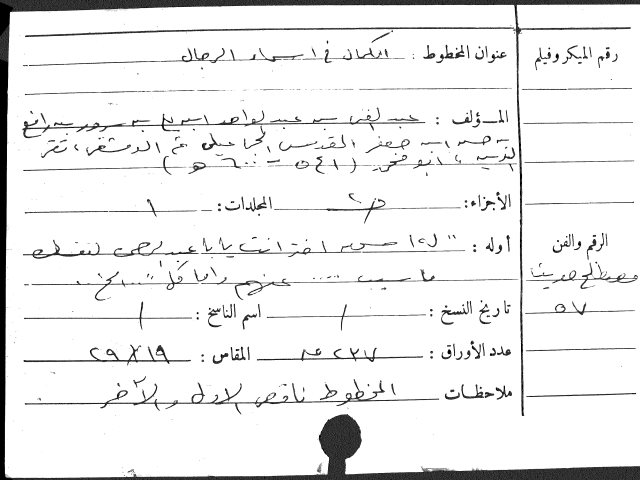 رقم الميكروفيلم
عنوان المخطوط : الكمال في اسماء الرجال
المؤلف : عبد الغني بن عبد الواحد بن علي بن سرور بن رافع
بن حسن بن جعفر المقدسي الجماعيلي ثم الدمشقي، تقي
الدين، ابو محمد ( ٥٤١ - ٦٠٠ هـ )
الأجزاء : ٢ المجلدات : ١
الرقم والفن
أوله : " اخر انت يا با عبد
مصطلح حديث
ما سبب .... عنهم واما كل ... الخ ..
٥٧
تاريخ النسخ : / اسم الناسخ : /
عدد الأوراق : ٢٣٧ المقاس : ١٩ × ٢٩
ملاحظات المخطوط ناقص الاول والآخر